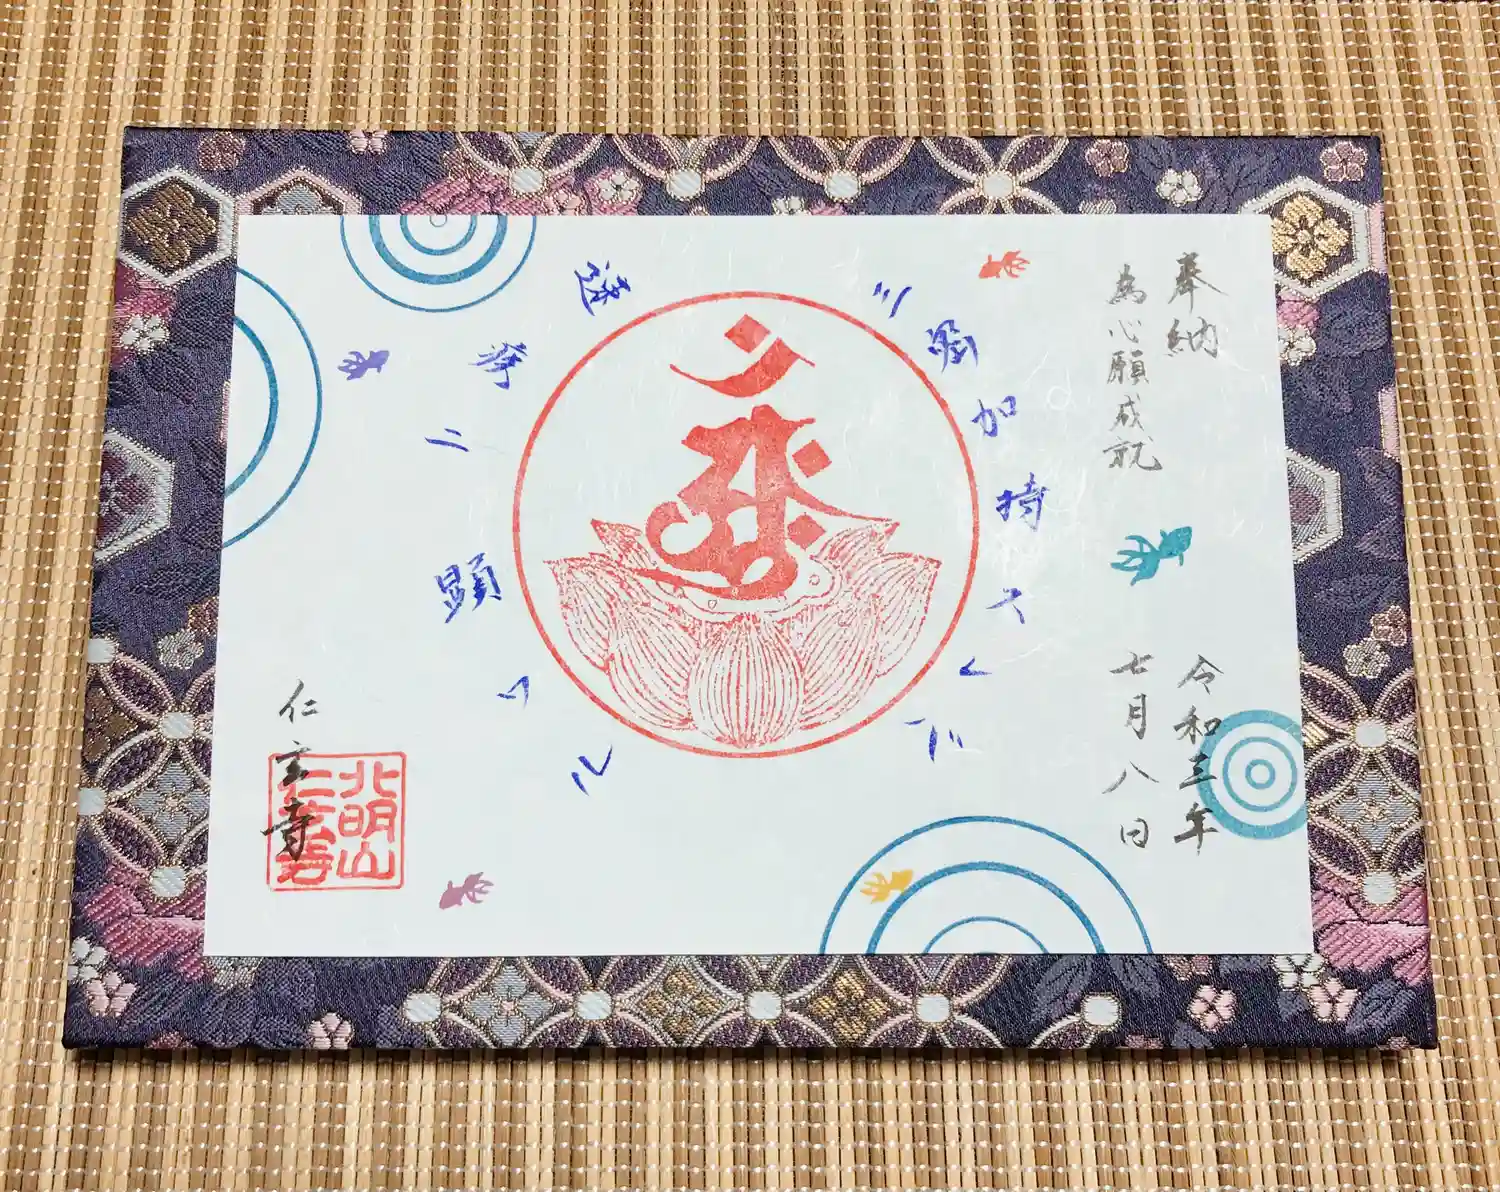 奉納 令和三年
為心願成就 七月八日
三密加持スレバ
速疾ニ顕ワル
仁玄寺
北明山